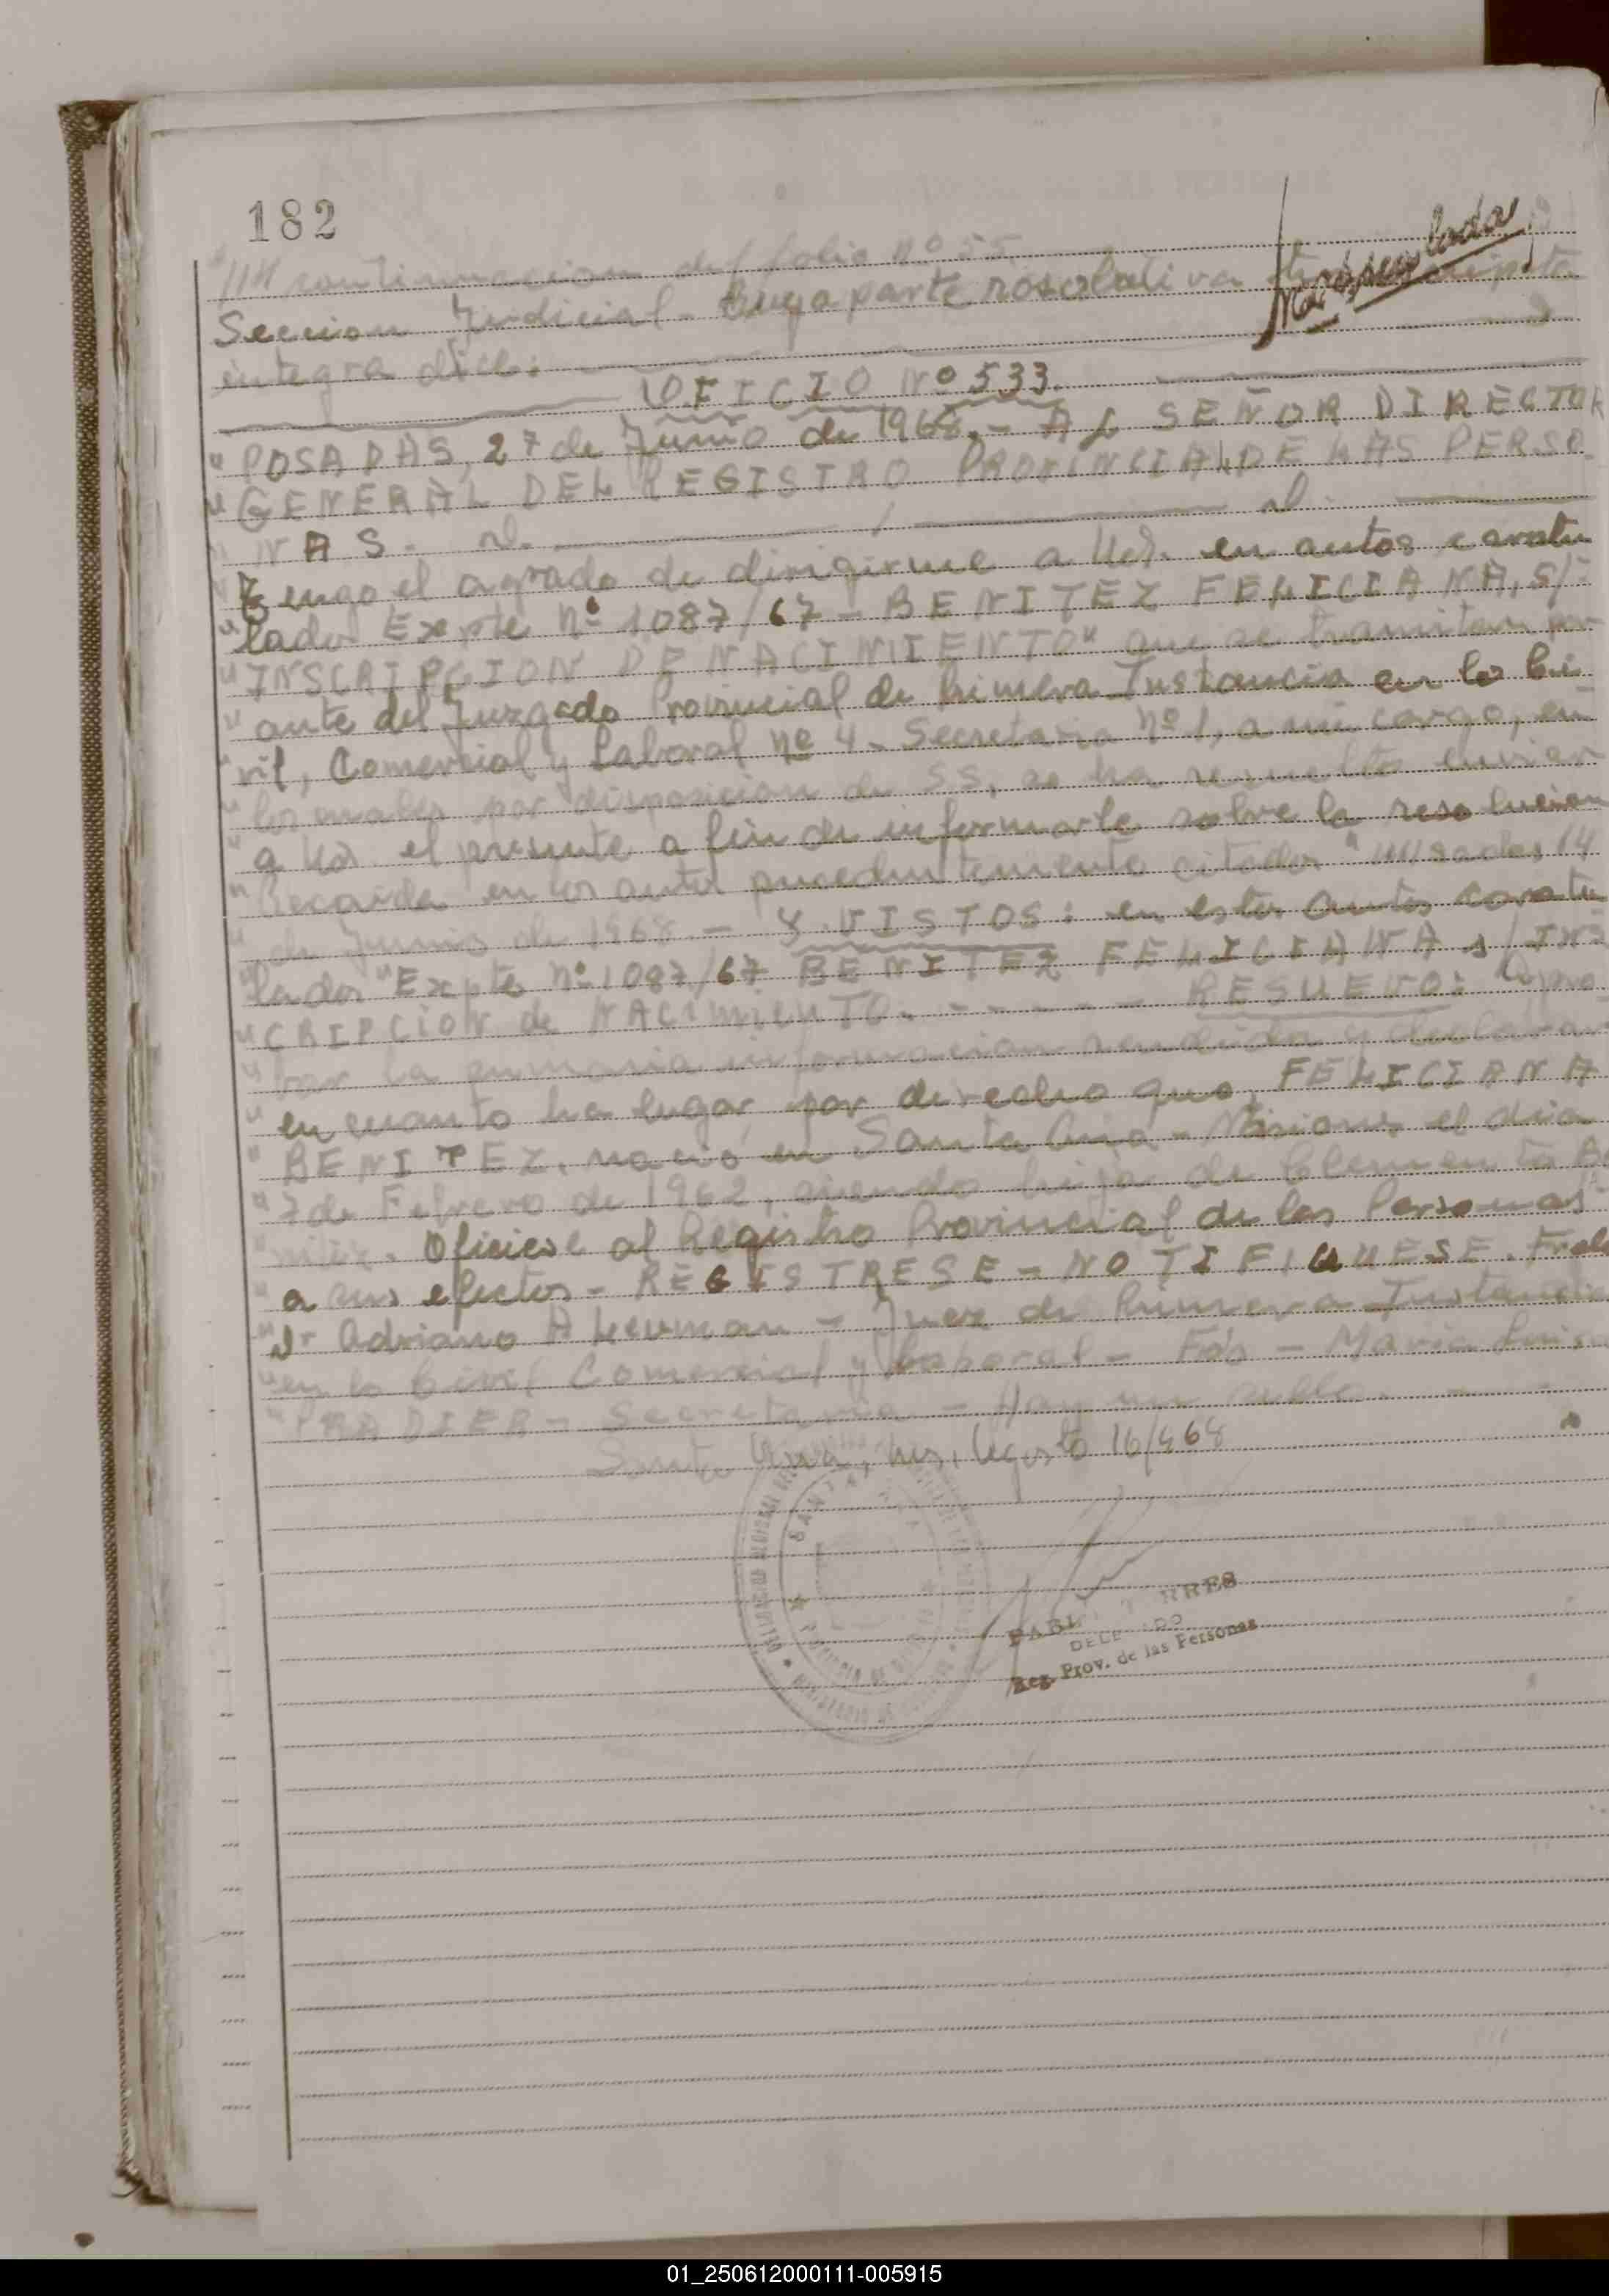 182
"//// continuacion del folio Nº 55
Seccion Judicial - Cuya parte resolutiva
integra dice:
OFICIO Nº 533.
" POSADAS, 27 de Junio de 1968.- AL SEÑOR DIRECTOR
" GENERAL DEL REGISTRO PROVINCIAL DE LAS PERSO
" NAS. S. / D.
" Tengo el agrado de dirigirme a Ud. en autos caratu
" lados Expte Nº 1087/67 - BENITEZ FELICIANA, S/-
" INSCRIPCION DE NACIMIENTO" que se tramitan por
" ante del Juzgado Provincial de Primera Instancia en lo Ci
" vil, Comercial y Laboral Nº 4 - Secretaria Nº 1, a mi cargo, en
" los cuales por disposicion de SS, se ha resuelto enviar
" a Ud el presente a fin de informarle sobre la resolucion
" Recaida en los autos precedentemente citados " ////sadas 14
" de Junio de 1968.- Y VISTOS: en estos autos caratu
" lados "Expte Nº 1087/67 BENITEZ FELICIANA s/INS
" CRIPCION de NACIMIENTO.- - - - - - RESUELVO: Apro
" bar la sumaria informacion rendida y declarar
" en cuanto ha lugar por derecho que, FELICIANA
" BENITEZ, nacio en Santa Ana - Misiones el dia
" 7 de Febrero de 1962, siendo hija de Clementa Be
" nitez. Oficiese al Registro Provincial de las Personas
" a sus efectos - REGISTRESE - NOTIFIQUESE. Fdo
" Dr Adriano A Leuman - Juez de Primera Instancia
" en lo Civil Comercial y Laboral - Fdo - Maria Luisa
" PRADIER - Secretaria - Hay un sello. - -
Santa Ana, Mns, Agosto 16/968
DELEGADO
Reg. Prov. de las Personas
01_250612000111-005915